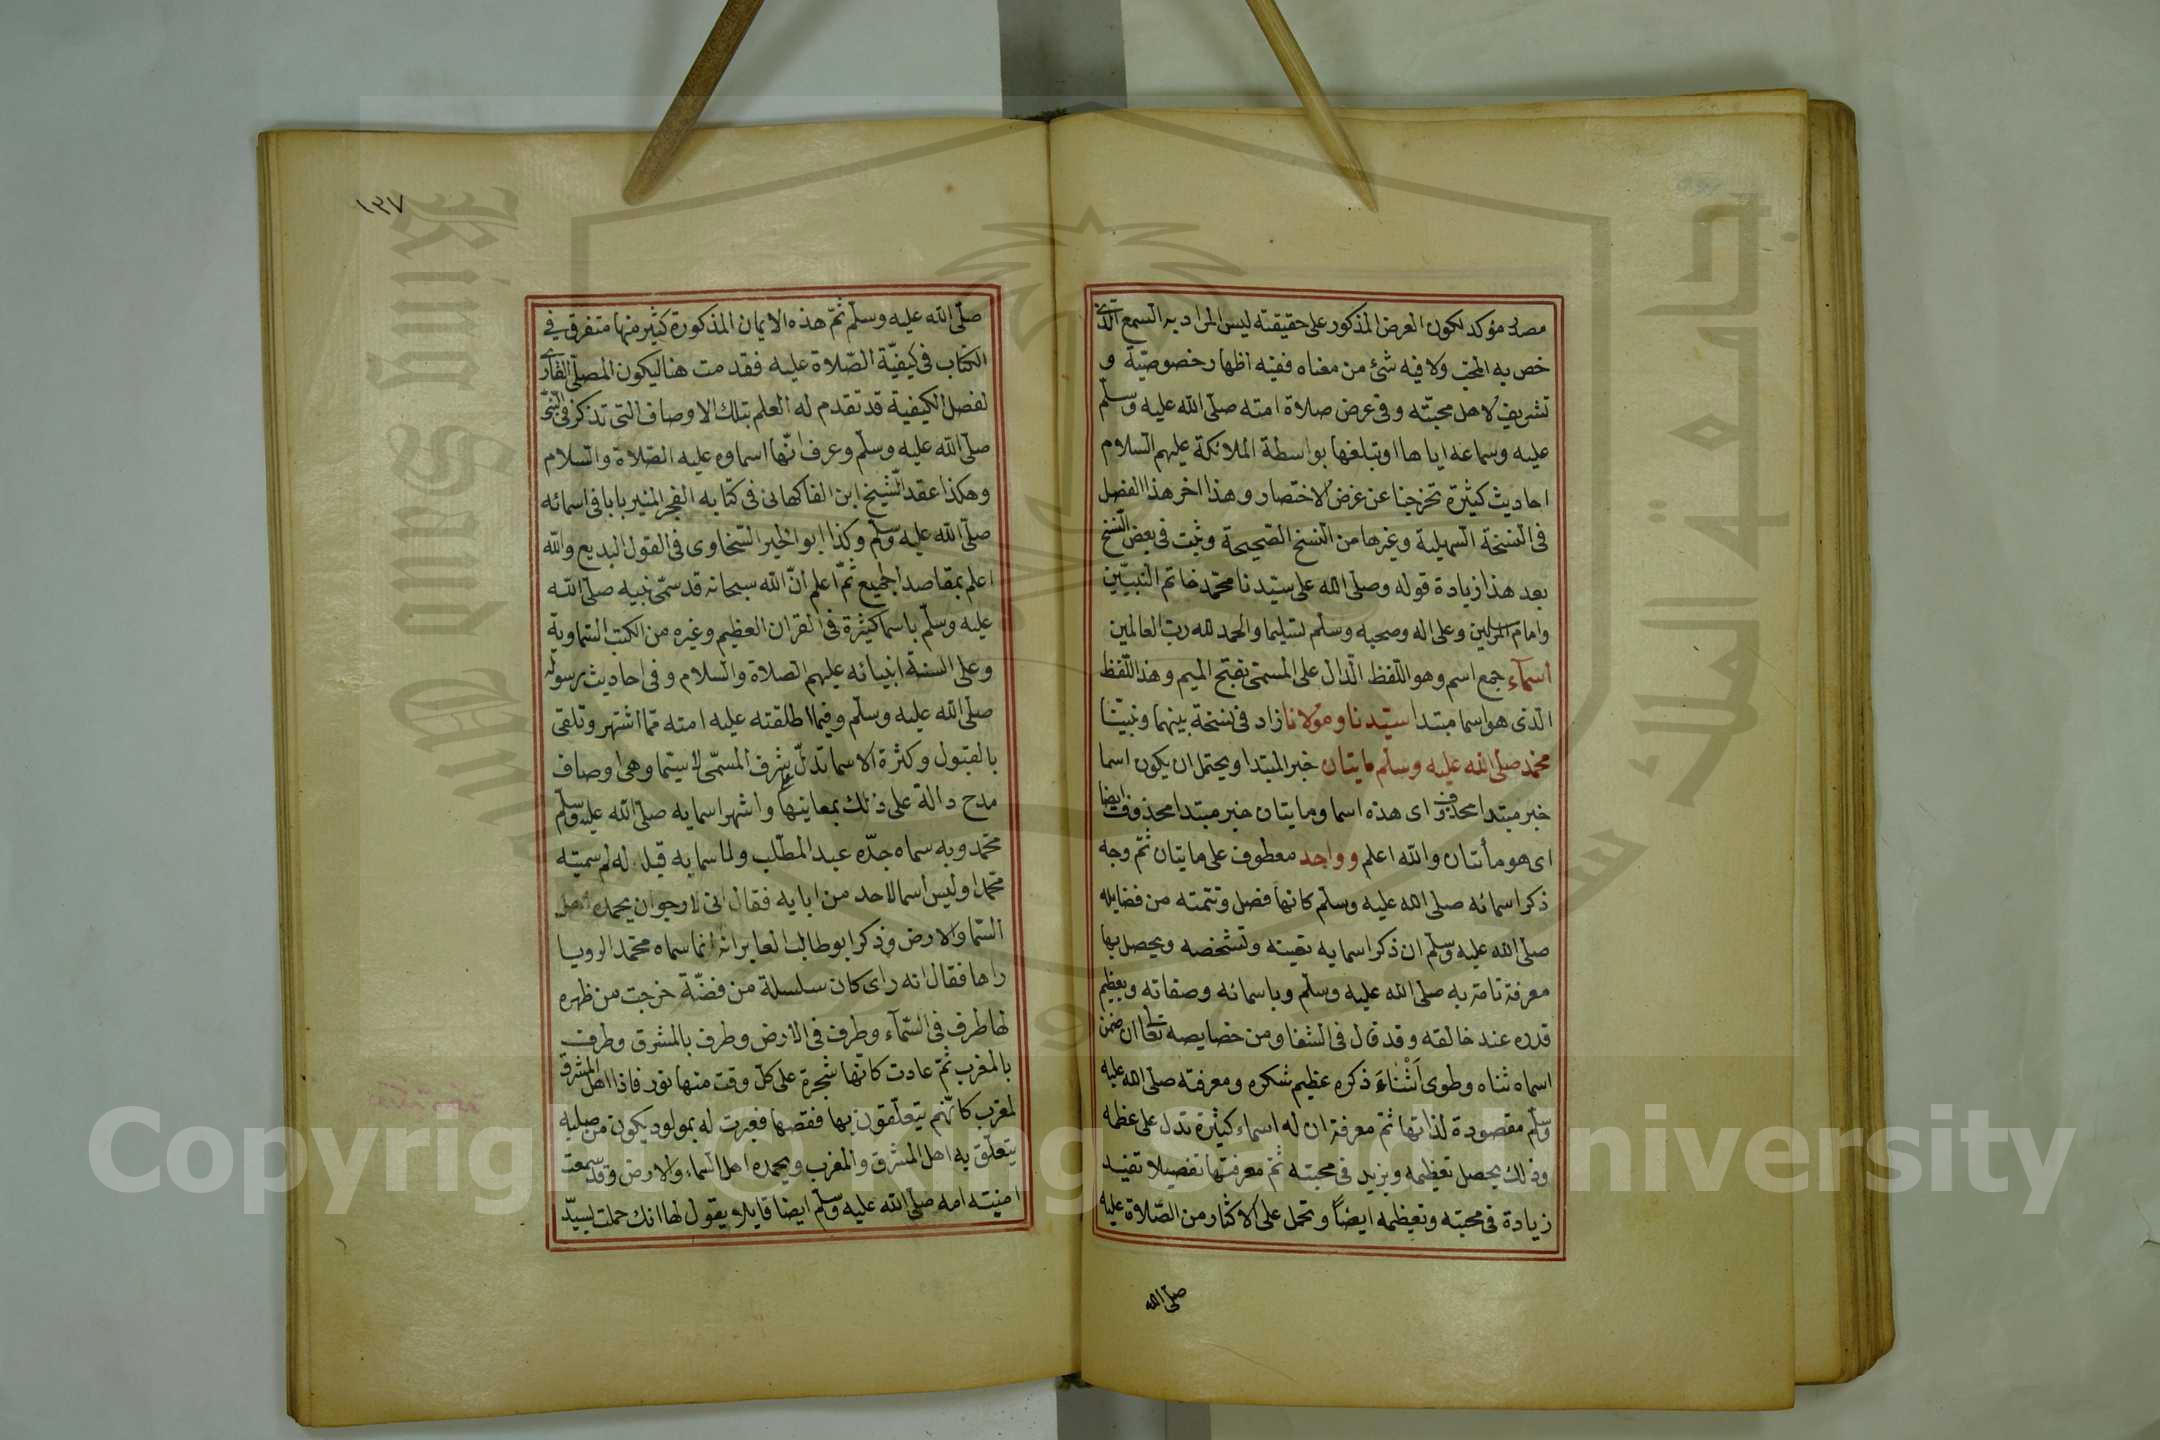 مصدر مؤكد لكون العرض المذكور على حقيقته ليس المراد به السمع الذى
خص به المحب ولا فيه شئ من معناه ففيه اظهار خصوصيّة و
تشريف لاهل محبّته وفى عرض صلاة امته صلّى الله عليه وسلّم
عليه وسماعه اياها او تبلغها بواسطة الملائكة عليهم السلام
احاديث كثيرة تخرجنا عن غرض الاختصار وهذا اخر هذا الفصل
فى النسخة السهيلية وغيرها من النسخ الصّحيحة وثبت فى بعض النسخ
بعد هذا زيادة قوله وصلّى الله على سيّدنا محمّد خاتم النبيّين
وامام المرسلين وعلى اله وصحبه وسلم تسليما والحمد لله ربّ العالمين
أسمآء جمع اسم وهو اللفظ الدّال على المسمّى بفتح الميم وهذا اللّفظ
الذى هو اسما مبتدا سيّدنا ومولانا زاد فى نسخة بينهما ونبيّنا
محمّد صلّى الله عليه وسلّم مايتان خبر المبتدا ويحتمل ان يكون اسما
خبر مبتدا محذوف اى هذه اسما ومايتان خبر مبتدا محذوف ايضا
اى هو مأتتان والله اعلم وواحد معطوف على مايتان ثمّ وجه
ذكر اسمائه صلى الله عليه وسلّم كانها فصل وتتمته من فضايله
صلّى الله عليه وسلّم ان ذكر اسمايه تعينه وتشخصه ويحصل بها
معرفة تامة به صلّى الله عليه وسلّم وباسمائه وصفاته وبعظيم
قدره عند خالقه وقد قال فى الشفا ومن خصايصه تعالى ان ضمن
اسماه ثناه وطوى أثناء ذكره عظيم شكره ومعرفته صلّى الله عليه
وسلّم مقصودة لذاتها ثمّ معرفة ان له اسماء كثيرة تدل على عظمه
وذلك يحصل تعظيمه ويزيد فى محبته ثمّ معرفتها تفصيلا تفيد
زيادة فى محبته وتعظيمه ايضًا وتحمل على الاكثار من الصّلاة عليه
صلّى الله
١٣٧
صلّى الله عليه وسلّم ثمّ هذه الايمان المذكورة كثير منها متفرق في
الكتاب فى كيفيّة الصّلاة عليه فقدمت هنا ليكون المصلّى القارى
لفصل الكيفية قد تقدم له العلم بتلك الاوصاف التى تذكر فى النبىّ
صلّى الله عليه وسلّم وعرف انّها اسماوه عليه الصّلاة والسلام
وهكذا عقد الشّيخ ابن الفاكهانى فى كتابه الفجر المنير بابا فى اسمائه
صلّى الله عليه وسلّم وكذا ابو الخير السّخاوى فى القول البديع والله
اعلم بمقاصد الجميع ثمّ اعلم انّ الله سبحانه قد سمّى نبيه صلّى الله
عليه وسلّم باسما كثيرة فى القران العظيم وغيره من الكتب السّماوية
وعلى السنة انبيائه عليهم الصلاة والسلام وفى احاديث رسوله
صلّى الله عليه وسلّم وفيما اطلقته عليه امته ممّا اشتهر وتلقى
بالقبول وكثرة الاسما تدلّ شرف المسمّى لاسيّما وهى اوصاف
مدح دالة على ذلك بمعاينها واشهر اسمايه صلّى الله عليه وسلّم
محّمد وبه سماه جدّه عبد المطلّب ولما سمايه قيل له لم سميته
محّمدا وليس اسما لاحد من ابايه فقال انى لارجوان يحمده اهل
السّما والارض وذكر ابو طالب العابر انه انما سماه محّمد الرويا
راها فقال انه راى كان سلسلة من فضّة خرجت من ظهره
لها طرف فى السّمآء وطرف فى الارض وطرف بالمشرق وطرف
بالمغرب ثمّ عادت كانّها شجرة على كلّ وقت منها نور فاذا اهل المشرق
لمغرب كانّهم يتعلّقون بها فقصها فعبرت له بمولود يكون من صلبه
يتعلّق به اهل المشرق والمغرب ويحمده اهل السّماء والارض وقد سمعت
امنيته امه صلّى الله عليه وسلّم ايضا قايلا يقول لها انك حملت بسيّد
King Saud University
جامعة الملك سعود
Copyright © King Saud University